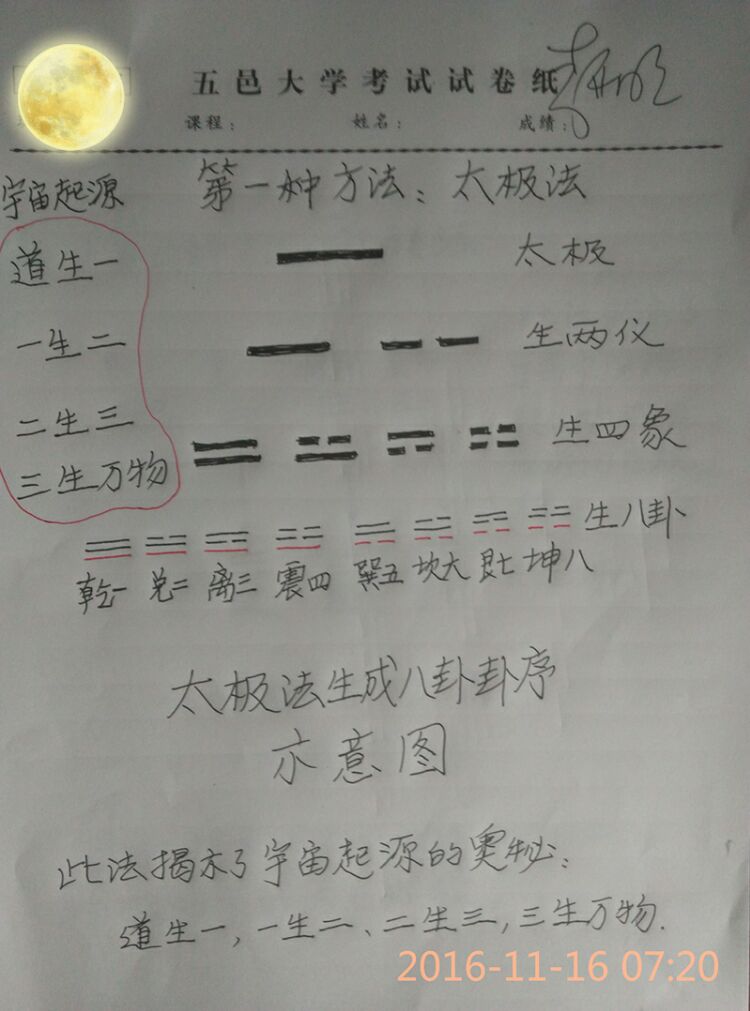 五邑大学考试试卷纸
课程： 姓名： 成绩：
宇宙起源 第一种方法：太极法
道生一 太极
一生二 生两仪
二生三 生四象
三生万物
生八卦
乾一 兑二 离三 震四 巽五 坎六 艮七 坤八
太极法生成八卦卦序
示意图
此法揭示了宇宙起源的奥秘：
道生一，一生二、二生三，三生万物.
2016-11-16 07:20